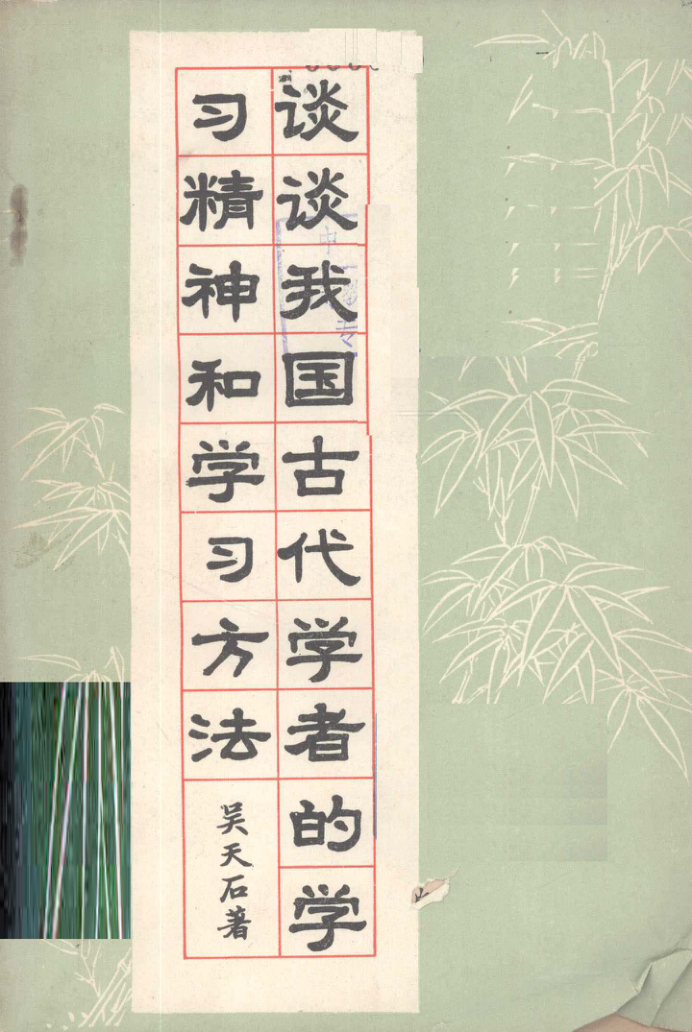 谈谈我国古代学者的学
习精神和学习方法
吴天石著